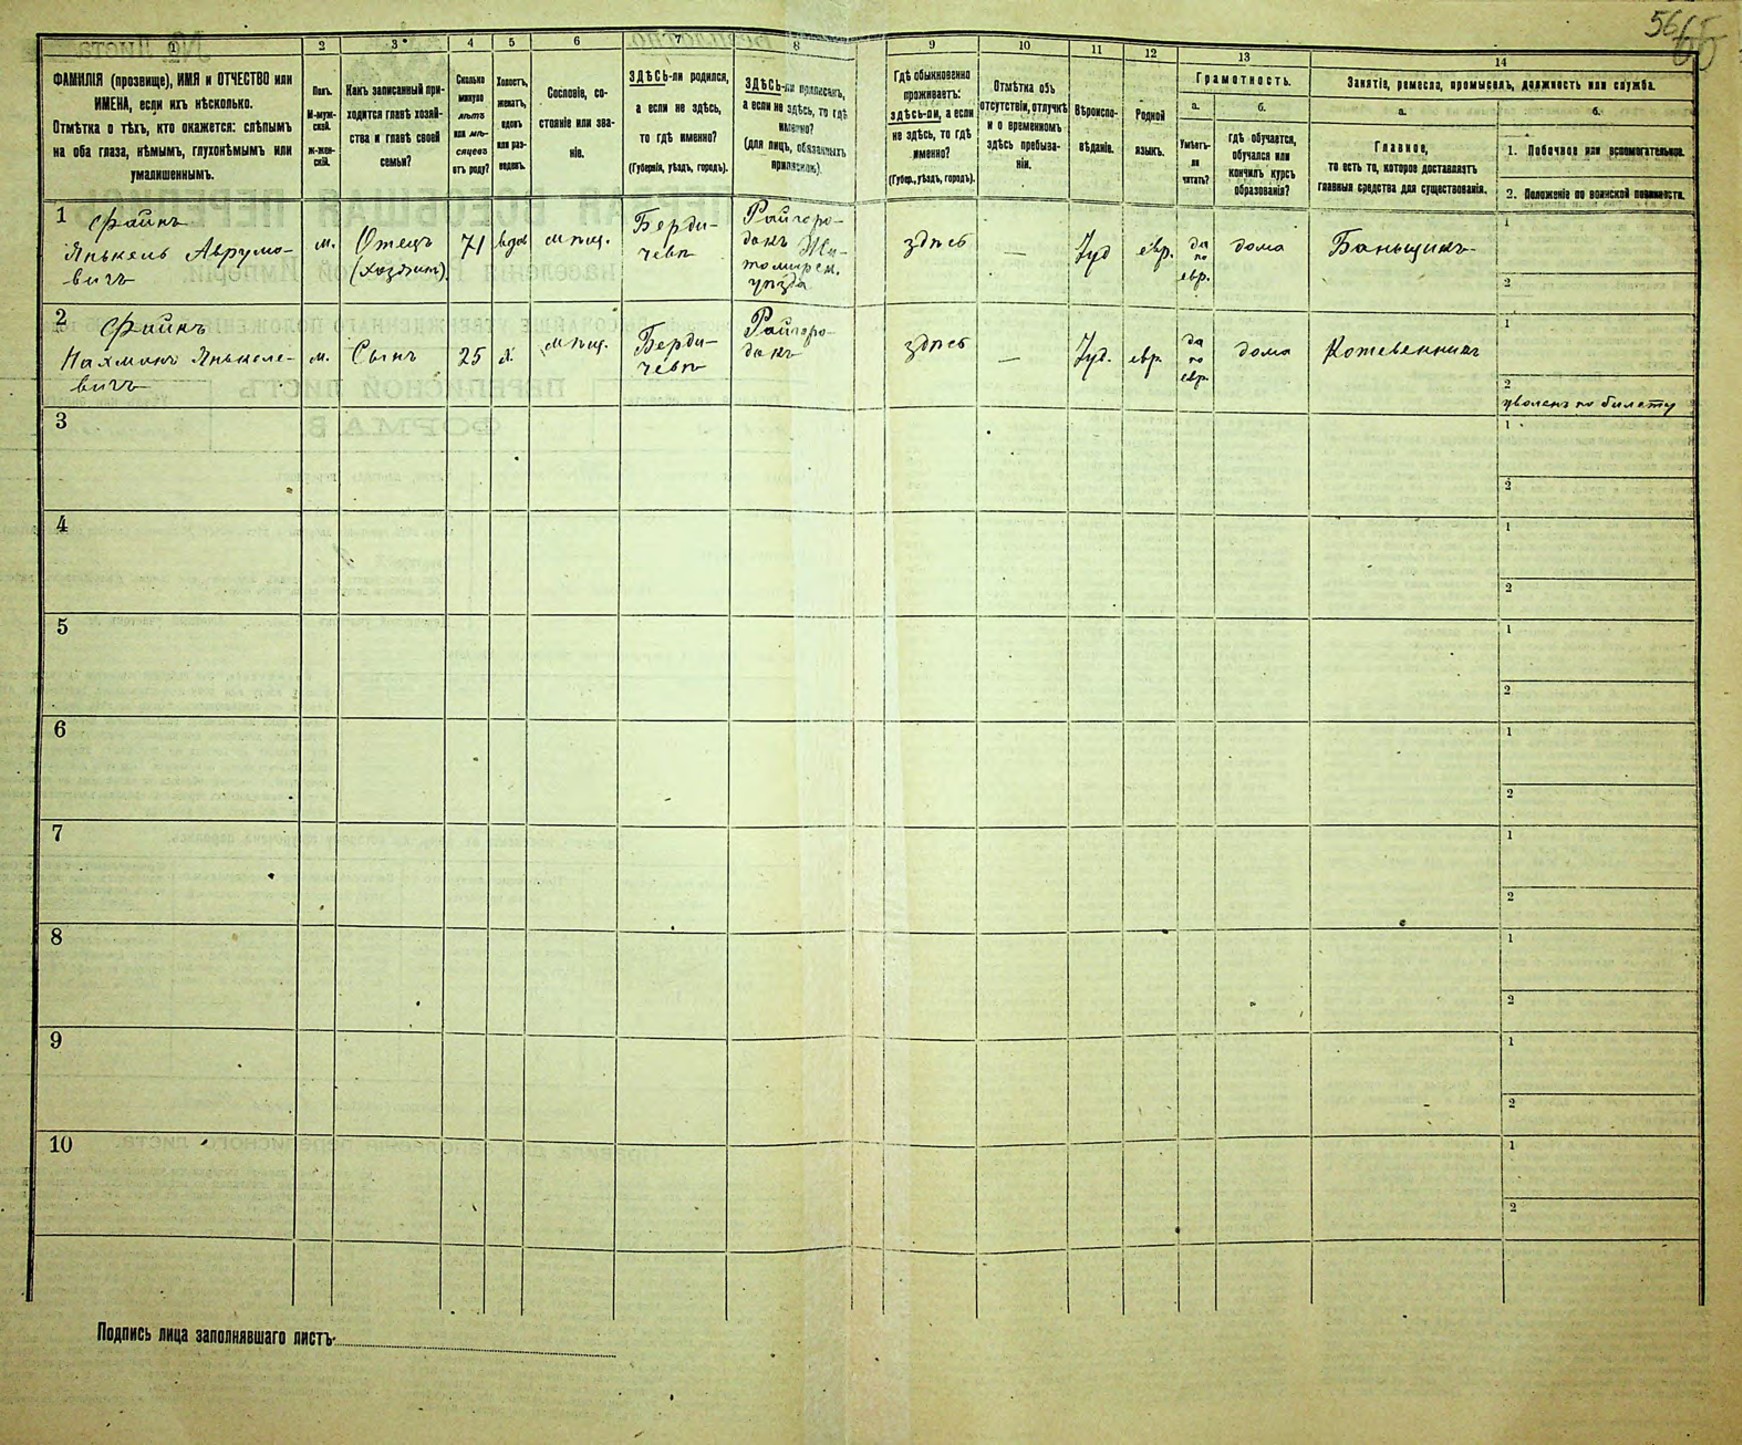 56 66
1 2 3 4 5 6 7 8 9 10 11 12 13 14
ФАМИЛІЯ (прозвище), ИМЯ и ОТЧЕСТВО или
ИМЕНА, если ихъ нѣсколько.
Отмѣтка о тѣхъ, кто окажется: слѣпымъ
на оба глаза, нѣмымъ, глухонѣмымъ или
умалишеннымъ.
Полъ.
М-муж-
ской.
Ж-жен-
скій.
Какъ записанный при-
ходится главѣ хозяй-
ства и главѣ своей
семьи?
Сколько
минуло
лѣтъ
или мѣ-
сяцевъ
отъ роду?
Холостъ,
женатъ,
вдовъ
или раз-
веденъ.
Сословіе, со-
стояніе или зва-
ніе.
ЗДѢСЬ-ли родился,
а если не здѣсь,
то гдѣ именно?
(Губернія, уѣздъ, городъ).
ЗДѢСЬ-ли приписанъ,
а если не здѣсь, то гдѣ
именно?
(для лицъ, обязанныхъ
припискою).
Гдѣ обыкновенно
проживаетъ:
здѣсь-ли, а если
не здѣсь, то гдѣ
именно?
(Губер., уѣздъ, городъ).
Отмѣтка объ
отсутствіи, отлучкѣ
и о временномъ
здѣсь пребыва-
ніи.
Вѣроиспо-
вѣданіе.
Родной
языкъ.
Грамотность.
а.
Умѣетъ-
ли
читать?
б.
гдѣ обучается,
обучался или
кончилъ курсъ
образованія?
Занятіе, ремесло, промыселъ, должность или служба.
а.
Главное,
то есть то, которое доставляетъ
главныя средства для существованія.
б.
1. Побочное или вспомогательное.
2. Положеніе по воинской повинности.
1
Файнъ
Янькель Аврумо-
вичъ
м.
Отецъ
(хозяин)
71
вдов
мѣщ.
Берди-
чевѣ
Райгоро-
докъ Жи-
томирск.
уѣзда
здѣсь
—
Іуд
евр.
да
по
евр.
дома
Баньщикъ
1
2
2
Файнъ
Нахманъ Янькеле-
вичъ
м.
Сынъ
25
х.
мѣщ.
Берди-
чевѣ
Райгоро-
докъ
здѣсь
—
Іуд.
евр.
да
по
евр.
дома
Кожевенникъ
1
2
уволенъ по билету
3
1
2
4
1
2
5
1
2
6
1
2
7
1
2
8
1
2
9
1
2
10
1
2
Подпись лица заполнявшаго листъ